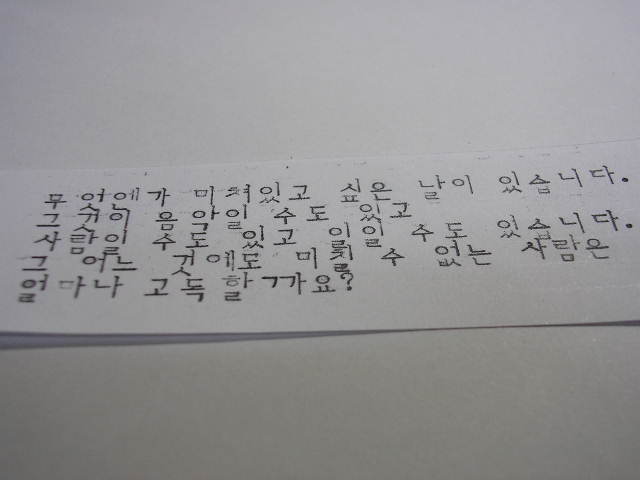 무엇엔가 미쳐있고 싶은 날이 있습니다.
그것이 음악일 수도 있고
사람일 수도 있고 일일 수도 있습니다.
그 어느 것에도 미칠 수 없는 사람은
얼마나 고독할까요?